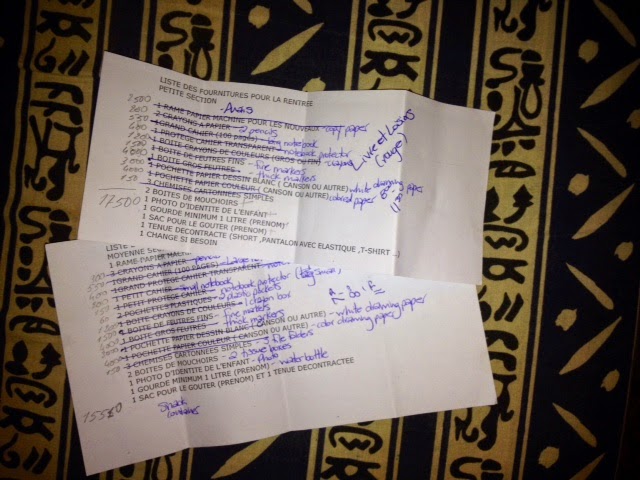 LISTE DES FOURNITURES POUR LA RENTRÉE
PETITE SECTION
Anais
2500 1 RAME PAPIER MACHINE POUR LES NOUVEAUX - copy paper
800 2 CRAYONS A PAPIER - 2 pencils
530 1 GRAND CAHIER (100 pages) - long notebook
400 1 PROTEGE CAHIER TRANSPARENT - notebook protector
1 BOITE CRAYONS DE COULEURS (GROS OU FIN) - crayons
1 BOITE DE FEUTRES FINS - fine markers
1 BOITE GROS FEUTRES - thick markers
1 POCHETTE PAPIER DESSIN BLANC (CANSON OU AUTRE) white drawing paper
1 POCHETTE PAPIER COULEUR (CANSON OU AUTRE) colored paper
3 CHEMISES CARTONNEES SIMPLES
2 BOITES DE MOUCHOIRS
1 PHOTO D'IDENTITE DE L'ENFANT
1 GOURDE MINIMUM 1 LITRE (PRENOM)
1 SAC POUR LE GOUTER (PRENOM)
1 TENUE DECONTRACTE (SHORT ,PANTALON AVEC ELASTIQUE ,T-SHIRT ..)
1 CHANGE SI BESOIN
17500
Livre et Loisirs
(rouge)
LISTE
MOYENNE
1 RAME PAPIER
2 CRAYONS A PAPIER
1 GRAND CAHIER (100 PAGES) - large
1 GRAND PROTEGE CAHIER TRANSPARENT
1 PETIT - small notebook
1 PETIT PROTEGE CAHIER - notebook protector
2 POCHETTES PLASTIQUES - 2 plastic
1 BOITE CRAYONS DE COULEURS - 1 crayon box
1 BOITE DE FEUTRES FINS - fine markers
1 BOITE GROS FEUTRES - thick markers
1 POCHETTE PAPIER DESSIN BLANC (CANSON OU AUTRE) - white drawing paper
1 POCHETTE PAPIER COULEUR (CANSON OU AUTRE) - color drawing paper
3 CHEMISES CARTONNEES SIMPLES - 3 file folders
2 BOITES DE MOUCHOIRS - 2 tissue boxes
1 PHOTO D'IDENTITE DE L'ENFANT - Photo
1 GOURDE MINIMUM 1 LITRE (PRENOM) - water bottle
1 SAC POUR LE GOUTER (PRENOM) ET 1 TENUE DECONTRACTEE
15550